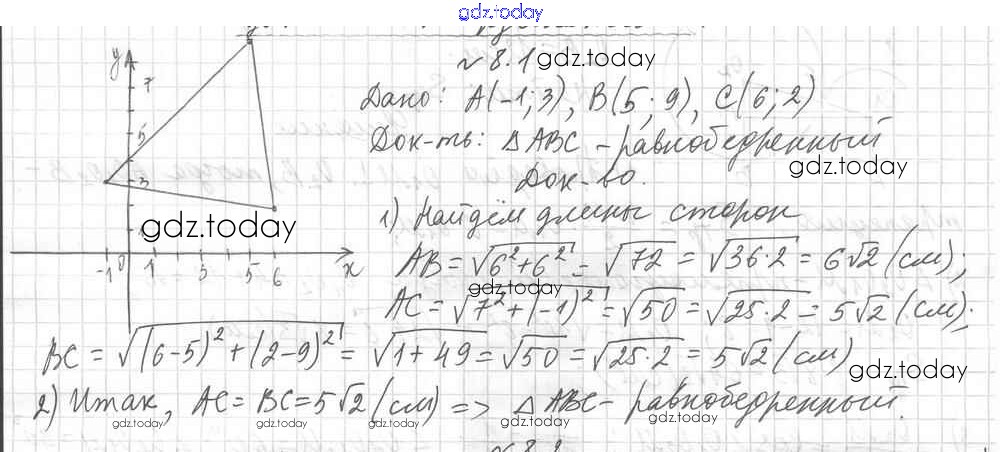 gdz.today
№ 8.1 gdz.today
Дано: A(-1; 3), B(5; 9), C(6; 2)
Док-ть: △ABC - равнобедренный
gdz.today
Док-во.
1) Найдём длины сторон
gdz.today
AB = √6²+6² = √72 = √36·2 = 6√2 (см);
gdz.today
AC = √7²+(-1)² = √50 = √25·2 = 5√2 (см);
BC = √(6-5)²+(2-9)² = √1+49 = √50 = √25·2 = 5√2 (см)
gdz.today
2) Итак, AC = BC = 5√2 (см) => △ABC - равнобедренный.
gdz.today gdz.today gdz.today gdz.today
y
7
5
3
1
-1 0 1 3 5 6 x